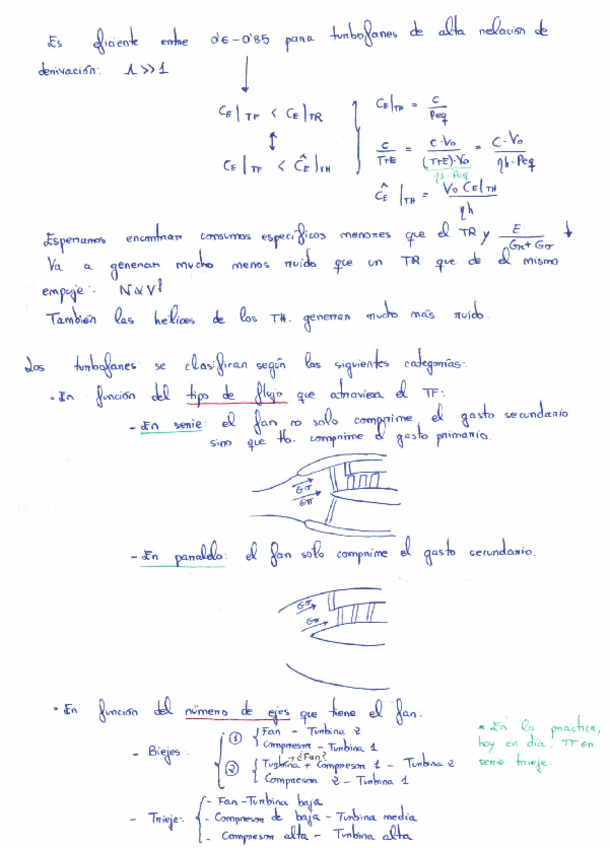 Es eficiente entre 0'6-0'85 para turbofanes de alta relación de
derivación: Λ >> 1
C_E|_TF < C_E|_TR
↕
C_E|_TF < Ĉ_E|_TH
C_E|_TH = C / Peq
C / (T+E) = C·V₀ / ((T+E)·V₀) = C·V₀ / (ηh·Peq)
ηh·Peq
Ĉ_E|_TH = V₀ C_E|_TH / ηh
Esperamos encontrar consumos específicos menores que el TR y E / (Gπ+Gσ) ↓
Va a generar mucho menos ruido que un TR que de el mismo
empuje: N α V⁸
También las hélices de los TH. generan mucho más ruido.
Los turbofanes se clasifican según las siguientes categorías:
• En función del tipo de flujo que atraviesa el TF:
- En serie: el fan no solo comprime el gasto secundario
sino que tb. comprime el gasto primario.
Gσ
Gπ
- En paralelo: el fan solo comprime el gasto secundario.
Gσ
Gπ
• En función del número de ejes que tiene el fan.
- Biejes:
① Fan - Turbina 2
Compresor - Turbina 1
→ ¿Fan?
② Turbina + Compresor 1 - Turbina 2
Compresor 2 - Turbina 1
* En la práctica,
hoy en día, TF en
serie trieje.
- Trieje:
- Fan-Turbina baja
- Compresor de baja - Turbina media
- Compresor alta - Turbina alta